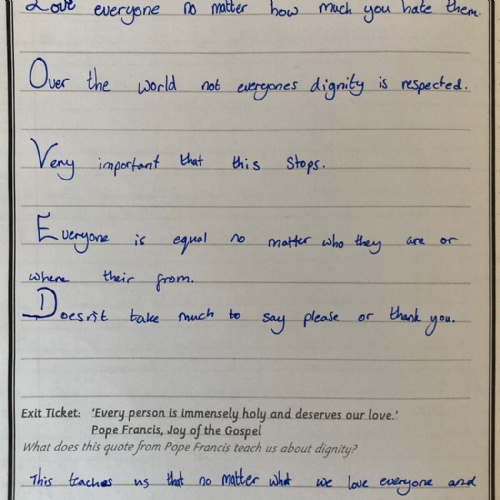 Love everyone no matter how much you hate them.
Over the world not everyones dignity is respected.
Very important that this stops.
Everyone is equal no matter who they are or
where their from.
Doesn't take much to say please or thank you.
Exit Ticket: 'Every person is immensely holy and deserves our love.'
Pope Francis, Joy of the Gospel
What does this quote from Pope Francis teach us about dignity?
This teaches us that no matter what we love everyone and